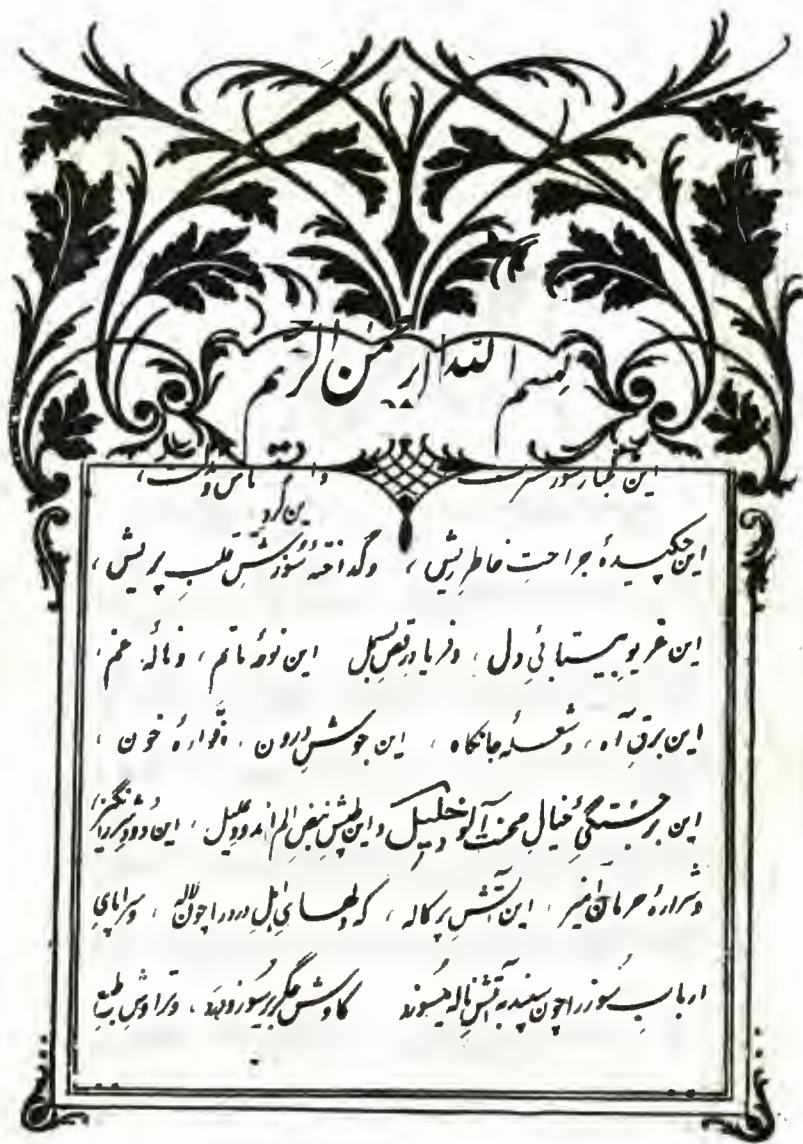 بسم الله الرحمن الرحیم
این
این چکیدهٔ جراحتِ خاطرِ ریش ، وگداختهٔ سوزشِ قلبِ پریش ،
این غریوِ بیتابئِ دل ، وفریادِ رقصِ بسمل این نوحهٔ ماتم ، ونالهٔ غم ،
این برقِ آه ، وشعلهٔ جانکاه ، این جوششِ درون ، وفوارهٔ خون ،
این برجستگئِ خیالِ محنت آلود واین طپشِ نبضِ الم اندودِ علیل ، این دودِ
وشرارهٔ حرمان این آتشِ پرکاله ، که دلهای اهلِ دردرا چون لاله ، وسراپایِ
اربابِ سوزرا چون سپند به آتشِ ناله میسوزد کاوشِ جگر ، وتراوشِ طبعِ